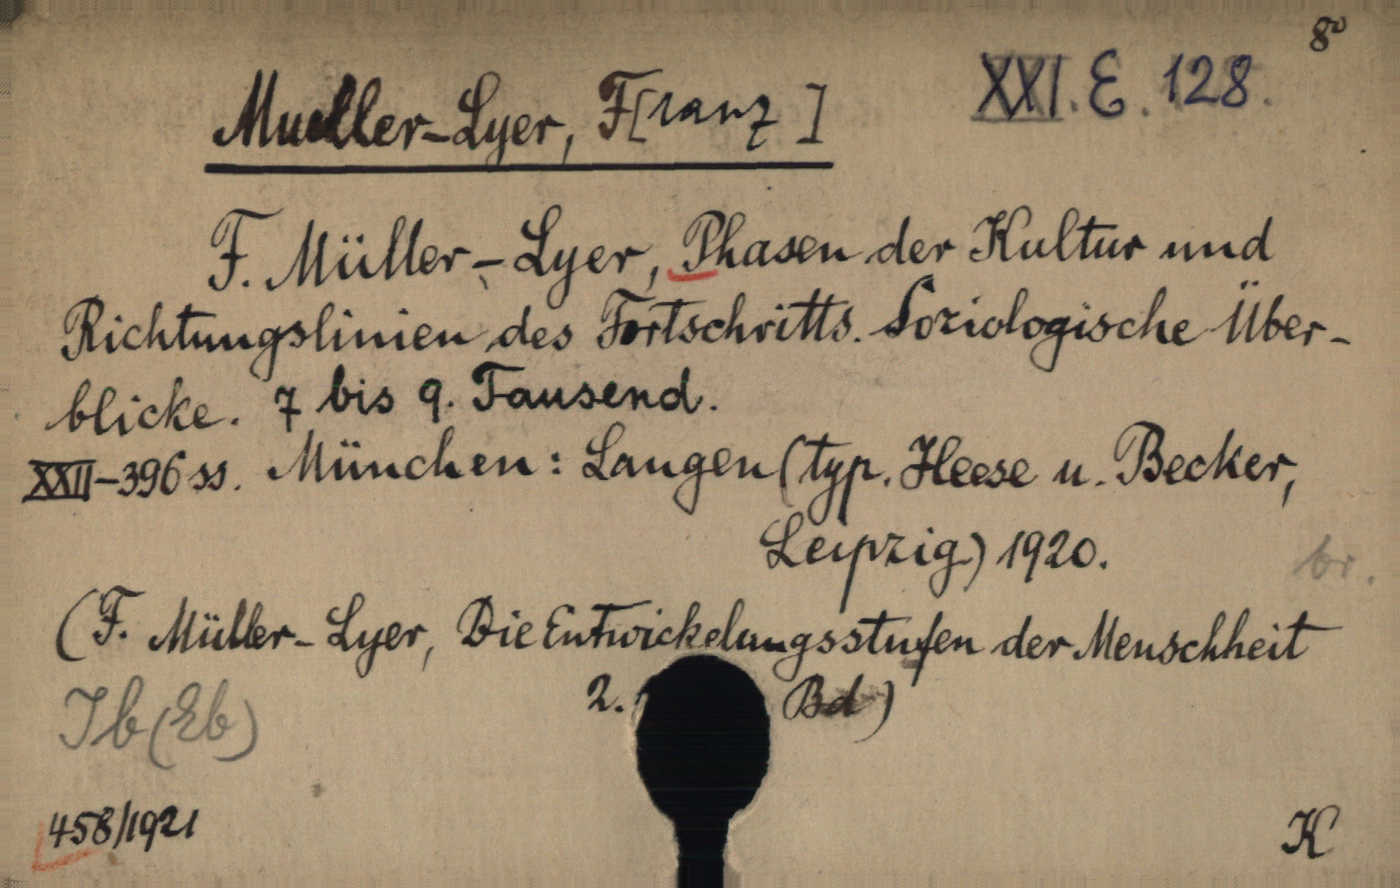 8°
XXI. E. 128.
Mueller-Lyer, F[ranz]
F. Müller-Lyer, Phasen der Kultur und
Richtungslinien des Fortschritts. Soziologische Über-
blicke. 7 bis 9. Tausend.
XXII-396 ss. München: Langen (typ. Heese u. Becker,
Leipzig) 1920.
br.
(F. Müller-Lyer, Die Entwickelungsstufen der Menschheit
2. Bd)
Ib (Eb)
458/1921
K